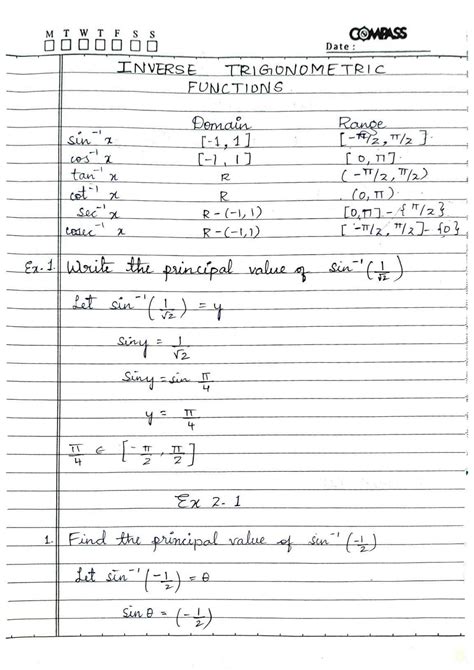 M T W T F S S
COMPASS
Date :
INVERSE TRIGONOMETRIC
FUNCTIONS
Domain Range
sin⁻¹ x [-1, 1] [-π/2, π/2]
cos⁻¹ x [-1, 1] [0, π]
tan⁻¹ x R (-π/2, π/2)
cot⁻¹ x R (0, π)
sec⁻¹ x R-(-1, 1) [0, π] - {π/2}
cosec⁻¹ x R-(-1, 1) [-π/2, π/2] - {0}
Ex. 1. Write the principal value of sin⁻¹ (1/√2)
Let sin⁻¹ (1/√2) = y
sin y = 1/√2
sin y = sin π/4
y = π/4
π/4 ∈ [-π/2, π/2]
Ex 2.1
1. Find the principal value of sin⁻¹ (-1/2)
Let sin⁻¹ (-1/2) = θ
sin θ = (-1/2)